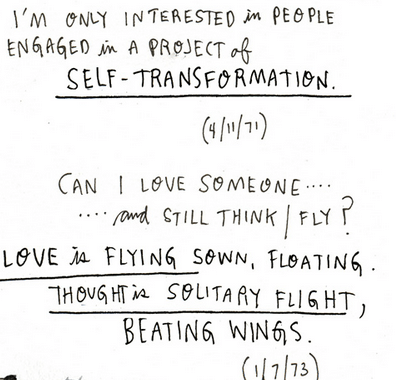 I'M ONLY INTERESTED in PEOPLE
ENGAGED in A PROJECT of
SELF-TRANSFORMATION.
(4/11/71)
CAN I LOVE SOMEONE....
.... and STILL THINK / FLY?
LOVE is FLYING SOWN, FLOATING.
THOUGHT is SOLITARY FLIGHT,
BEATING WINGS.
(1/7/73)